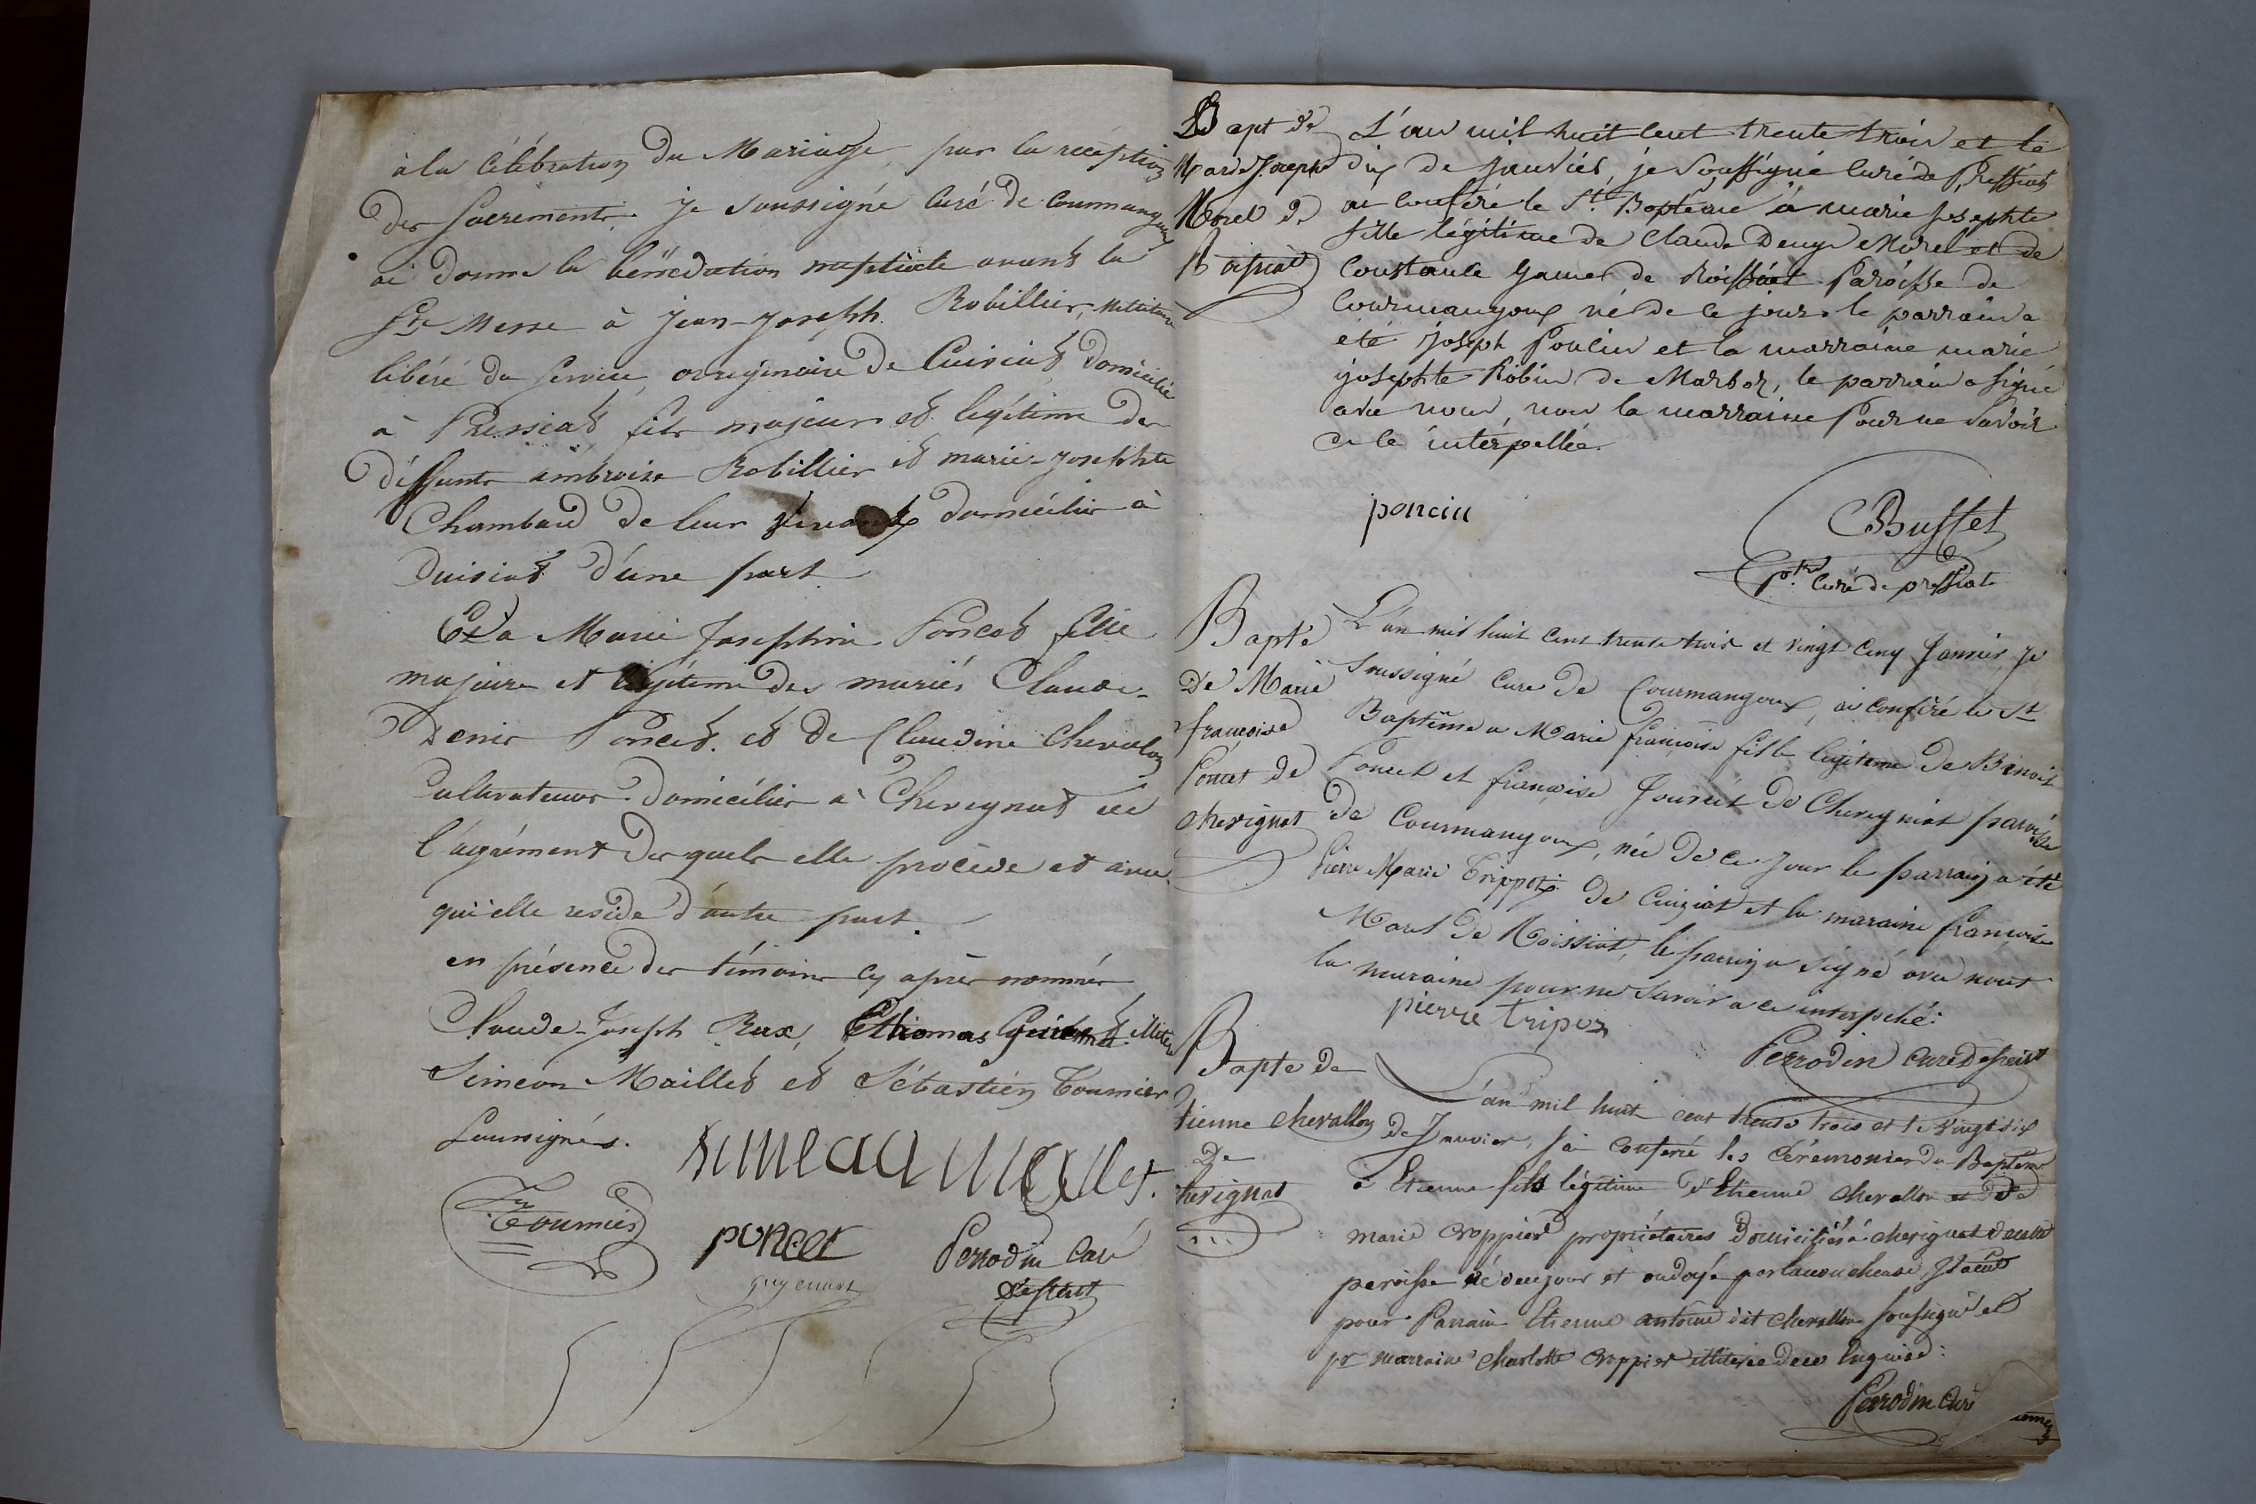 à la célébration du Mariage, par la réception
des Sacrements. je soussigné curé de Courmangoux
ai donné la bénédiction nuptiale avant la
Ste Messe à Jean-Joseph Robillier, militaire
libéré du service, originaire de Cuisiat domicilié
à Pressiat fils majeur et légitime des
déffunts ambroise Robillier et marie-josephte
Chambard de leur vivant domiciliés à
Cuisiat d'une part
Et à Marie Josephine Poncet fille
majeure et légitime des mariés Claude-
Denis Poncet et de Claudine Chevalon
Cultivateurs domiciliés à Chevignat de
l'agrément des quels elle procède et avec
qui elle reside d'autre part.
en présence des témoins cy après nommés
Claude-Joseph Rux, Thomas illitérés
Simeon Maillet et Sébastien Tournier
Soussignés.
simeaa maillet.
Tournier
poncet
Perrodin Curé
guyennet
Bapt de
Marie Joseph
Morel de
Roissiat
L'an mil huit cent trente trois et le
dix de janvier, je soussigné curé de Pressiat
ai conféré le St Baptème à marie josephte
fille légitime de Claude Denys Morel et de
Constance Gamet de Roissiat Paroisse de
Courmangoux né de ce jour. le parrain a
eté joseph Poncin et la marraine marie
josephte Robin de Marboz, le parrain a signé
avec nous, non la marraine Pour ne savoir
de ce intérpellée.
poncin
Buffet
ptre curé de pressiat
Bapte
De Marie
françoise
Poncet de
chevignat
L'an mil huit cent trente trois et vingt cinq Janvier, je
soussigné curé de Courmangoux, ai conféré le St
Baptême a Marie françoise fille légitime de Benoit
Poncet et françoise Journet de Chevigniat paroisse
de Courmangoux, née de ce jour le parrain a été
Pierre Marie Trippoz de Cuiziat et la maraine françoise
Morel de Roissiat, le parrin a signé avec nous
la maraine pour ne savoir a ce interpelé:
pierre tripoz
Perrodin curé
Bapte de
Etienne chevallon
De
chevignat
L'an mil huit cent trente trois et le vingt six
de Janvier, j'ai conferé les cérémonies du Baptême
à Etienne fils légitime d'Etienne chevallon et de
marie croppier propriétaires domiciliés à chevignat de cette
paroisse né ce jour et ondoyé par l'accoucheuse. Il a eut
pour Parrain Etienne antoine dit chevallon soussigné et
pr marraine charlotte croppier illiterée de ce Enquise:
Perrodin Curé